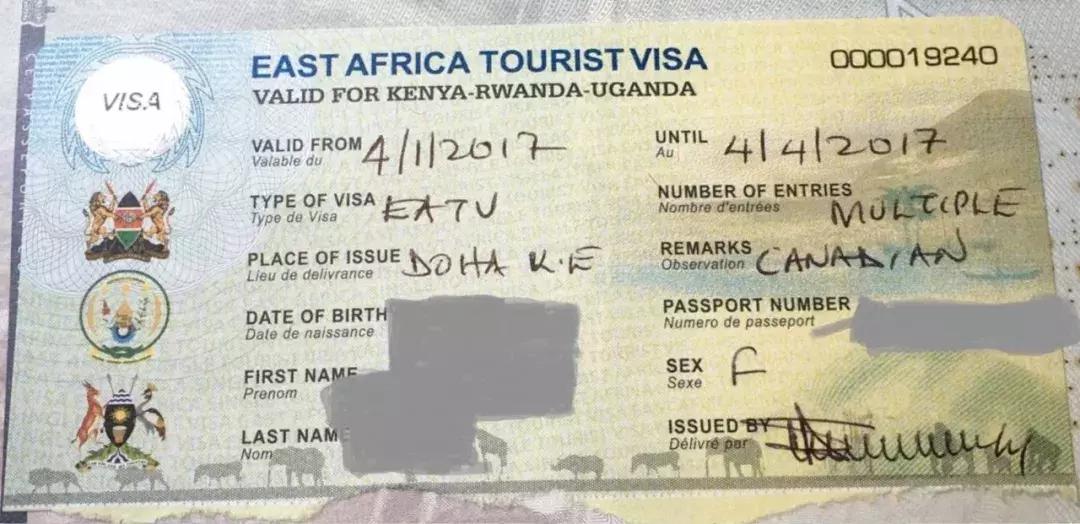 EAST AFRICA TOURIST VISA
000019240
VALID FOR KENYA-RWANDA-UGANDA
VISA
VALID FROM 4/1/2017
Valable du
UNTIL 4/4/2017
Au
TYPE OF VISA EATV
Type de Visa
NUMBER OF ENTRIES MULTIPLE
Nombre d'entrées
PLACE OF ISSUE DOHA K.E
Lieu de delivrance
REMARKS CANADIAN
Observation
DATE OF BIRTH
Date de naissance
PASSPORT NUMBER
Numero de passeport
FIRST NAME
Prenom
SEX F
Sexe
LAST NAME
Nom
ISSUED BY
Délivré par